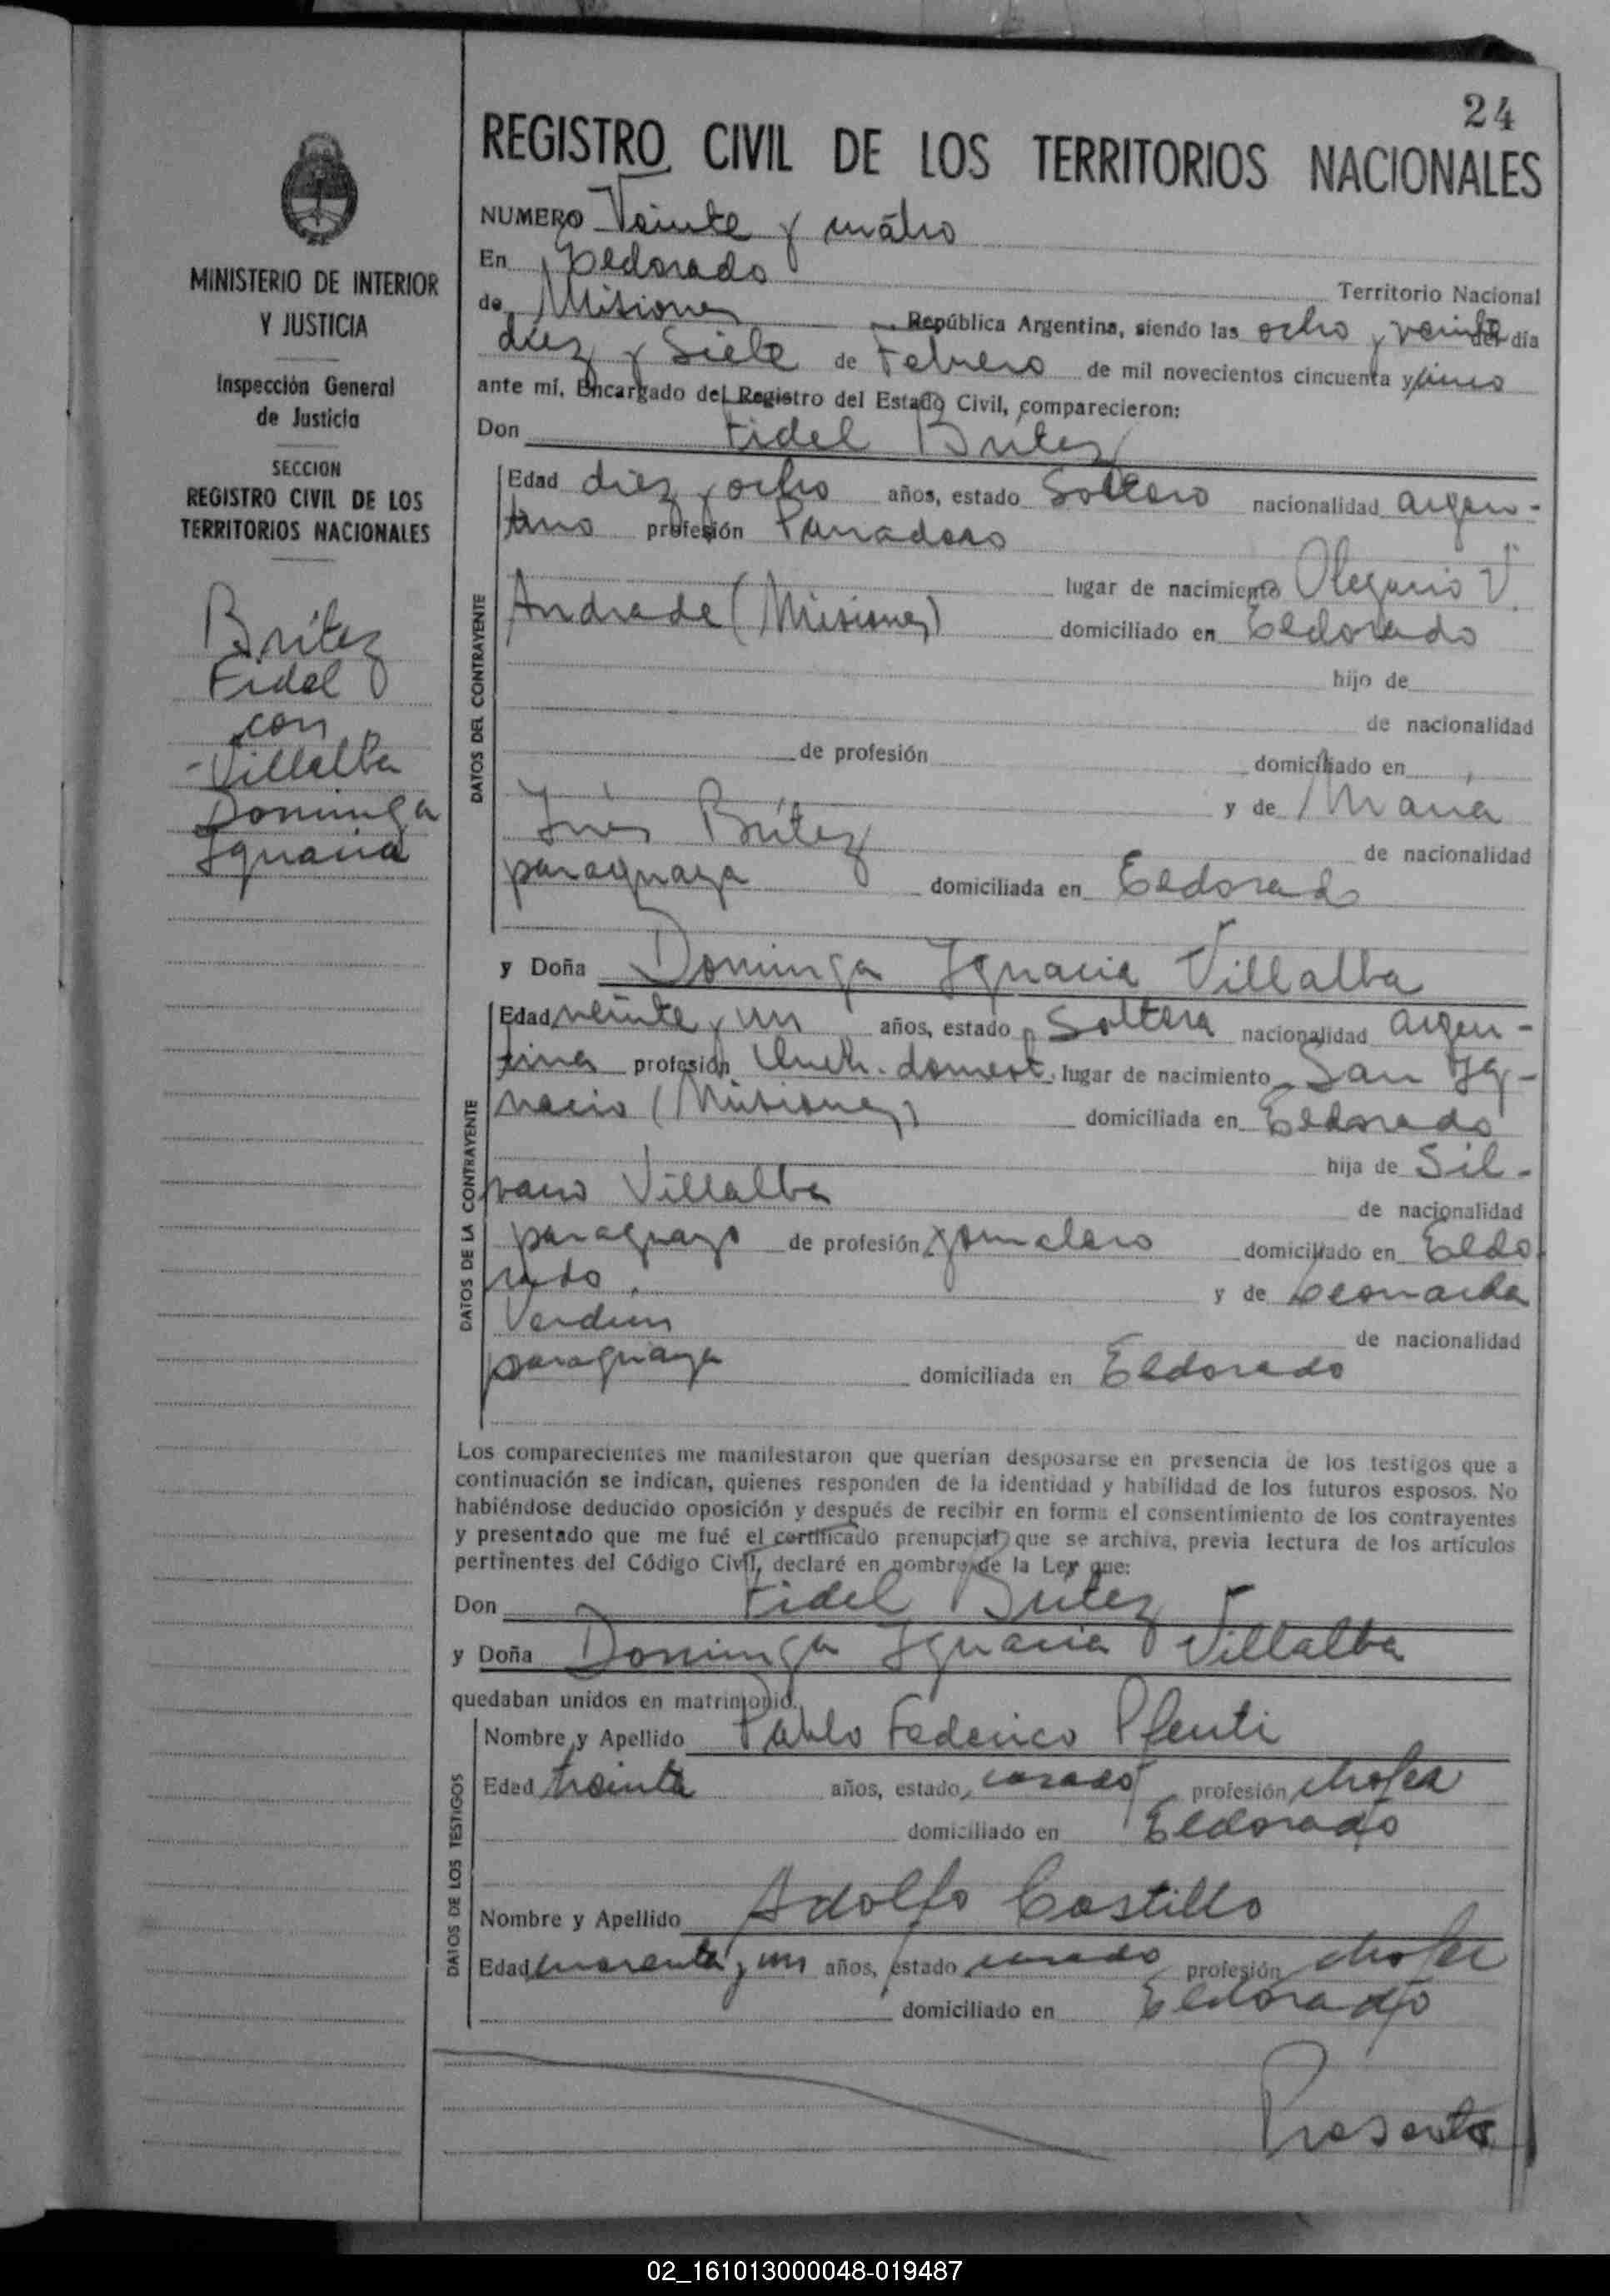 24
REGISTRO CIVIL DE LOS TERRITORIOS NACIONALES
MINISTERIO DE INTERIOR
Y JUSTICIA
Inspección General
de Justicia
SECCION
REGISTRO CIVIL DE LOS
TERRITORIOS NACIONALES
Brítez
Fidel
con
Villalba
Dominga
Ignacia
NUMERO Veinte y cuatro
En Eldorado Territorio Nacional
de Misiones República Argentina, siendo las ocho y veinte del día
diez y Siete de Febrero de mil novecientos cincuenta y cinco
ante mí, Encargado del Registro del Estado Civil, comparecieron:
Don Fidel Brítez
DATOS DEL CONTRAYENTE
Edad diez y ocho años, estado Soltero nacionalidad argen-
tino profesión Panadero
lugar de nacimiento Olegario V.
Andrade (Misiones) domiciliado en Eldorado
hijo de
de nacionalidad
de profesión domiciliado en
y de María
Inés Brítez de nacionalidad
paraguaya domiciliada en Eldorado
y Doña Dominga Ignacia Villalba
DATOS DE LA CONTRAYENTE
Edad veinte y un años, estado Soltera nacionalidad argen-
tina profesión Queh. domest. lugar de nacimiento San Ig-
nacio (Misiones) domiciliada en Eldorado
hija de Sil-
vano Villalba de nacionalidad
paraguayo de profesión jornalero domiciliado en Eldo-
rado y de Leonarda
Verdun de nacionalidad
paraguaya domiciliada en Eldorado
Los comparecientes me manifestaron que querían desposarse en presencia de los testigos que a
continuación se indican, quienes responden de la identidad y habilidad de los futuros esposos. No
habiéndose deducido oposición y después de recibir en forma el consentimiento de los contrayentes
y presentado que me fué el certificado prenupcial que se archiva, previa lectura de los artículos
pertinentes del Código Civil, declaré en nombre de la Ley que:
Don Fidel Brítez
y Doña Dominga Ignacia Villalba
quedaban unidos en matrimonio.
DATOS DE LOS TESTIGOS
Nombre y Apellido Pablo Federico Pfenti
Edad treinta años, estado casado profesión chofer
domiciliado en Eldorado
Nombre y Apellido Adolfo Castillo
Edad cuarenta y un años, estado casado profesión chofer
domiciliado en Eldorado
Presente
02_161013000048-019487